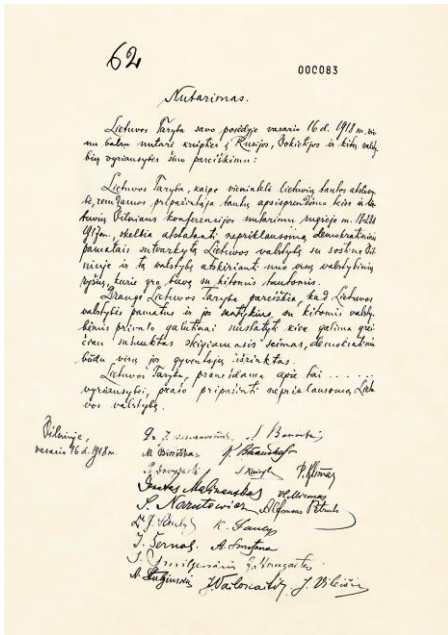 62
000083
Nutarimas.
Lietuvos Taryba savo posėdyje vasario 16 d. 1918 m. vie-
nu balsu nutarė kreiptis į Rusijos, Vokietijos ir kitų valsty-
bių vyriausybes šiuo pareiškimu:
Lietuvos Taryba, kaipo vienintelė lietuvių tautos atstovy-
bė, remdamos pripažintąja tautų apsisprendimo teise ir lie-
tuvių Vilniaus konferencijos nutarimu rugsėjo m. 18-23 d.
1917 m., skelbia atstatanti nepriklausomą, demokratiniais
pamatais sutvarkytą Lietuvos valstybę su sostine Vil-
niuje ir tą valstybę atskirianti nuo visų valstybinių
ryšių, kurie yra buvę su kitomis tautomis.
Drauge Lietuvos Taryba pareiškia, kad Lietuvos
valstybės pamatus ir jos santykius su kitomis valsty-
bėmis privalo galutinai nustatyti kiek galima grei-
čiau sušauktas steigiamasis seimas, demokratiniu
būdu visų jos gyventojų išrinktas.
Lietuvos Taryba, pranešdama apie tai . . . . . .
vyriausybei, prašo pripažinti nepriklausomą Lietu-
vos valstybę.
Vilniuje,
vasario 16 d. 1918 m.
J. Basanavičius S. Banaitis
M. Biržiška K. Bizauskas
P. Dovydaitis S. Kairys P. Klimas
Donatas Malinauskas Vl. Mironas
S. Narutowicz Alfonsas Petrulis
Dr J. Šaulys K. Šaulys
J. Šernas A. Smetona
J. Smilgevičius J. Staugaitis
A. Stulginskis J. Vailokaitis J. Vileišis